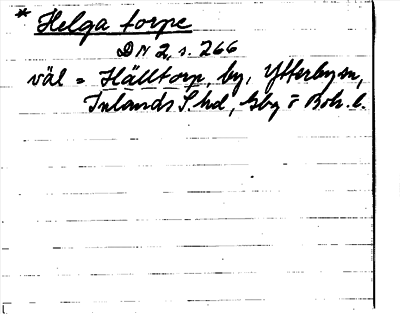 * Helga torpe
DN 2, s. 266
väl = Hälltorp, by, Ytterby sn,
Inlands S. hd, Gbg o Boh. l.